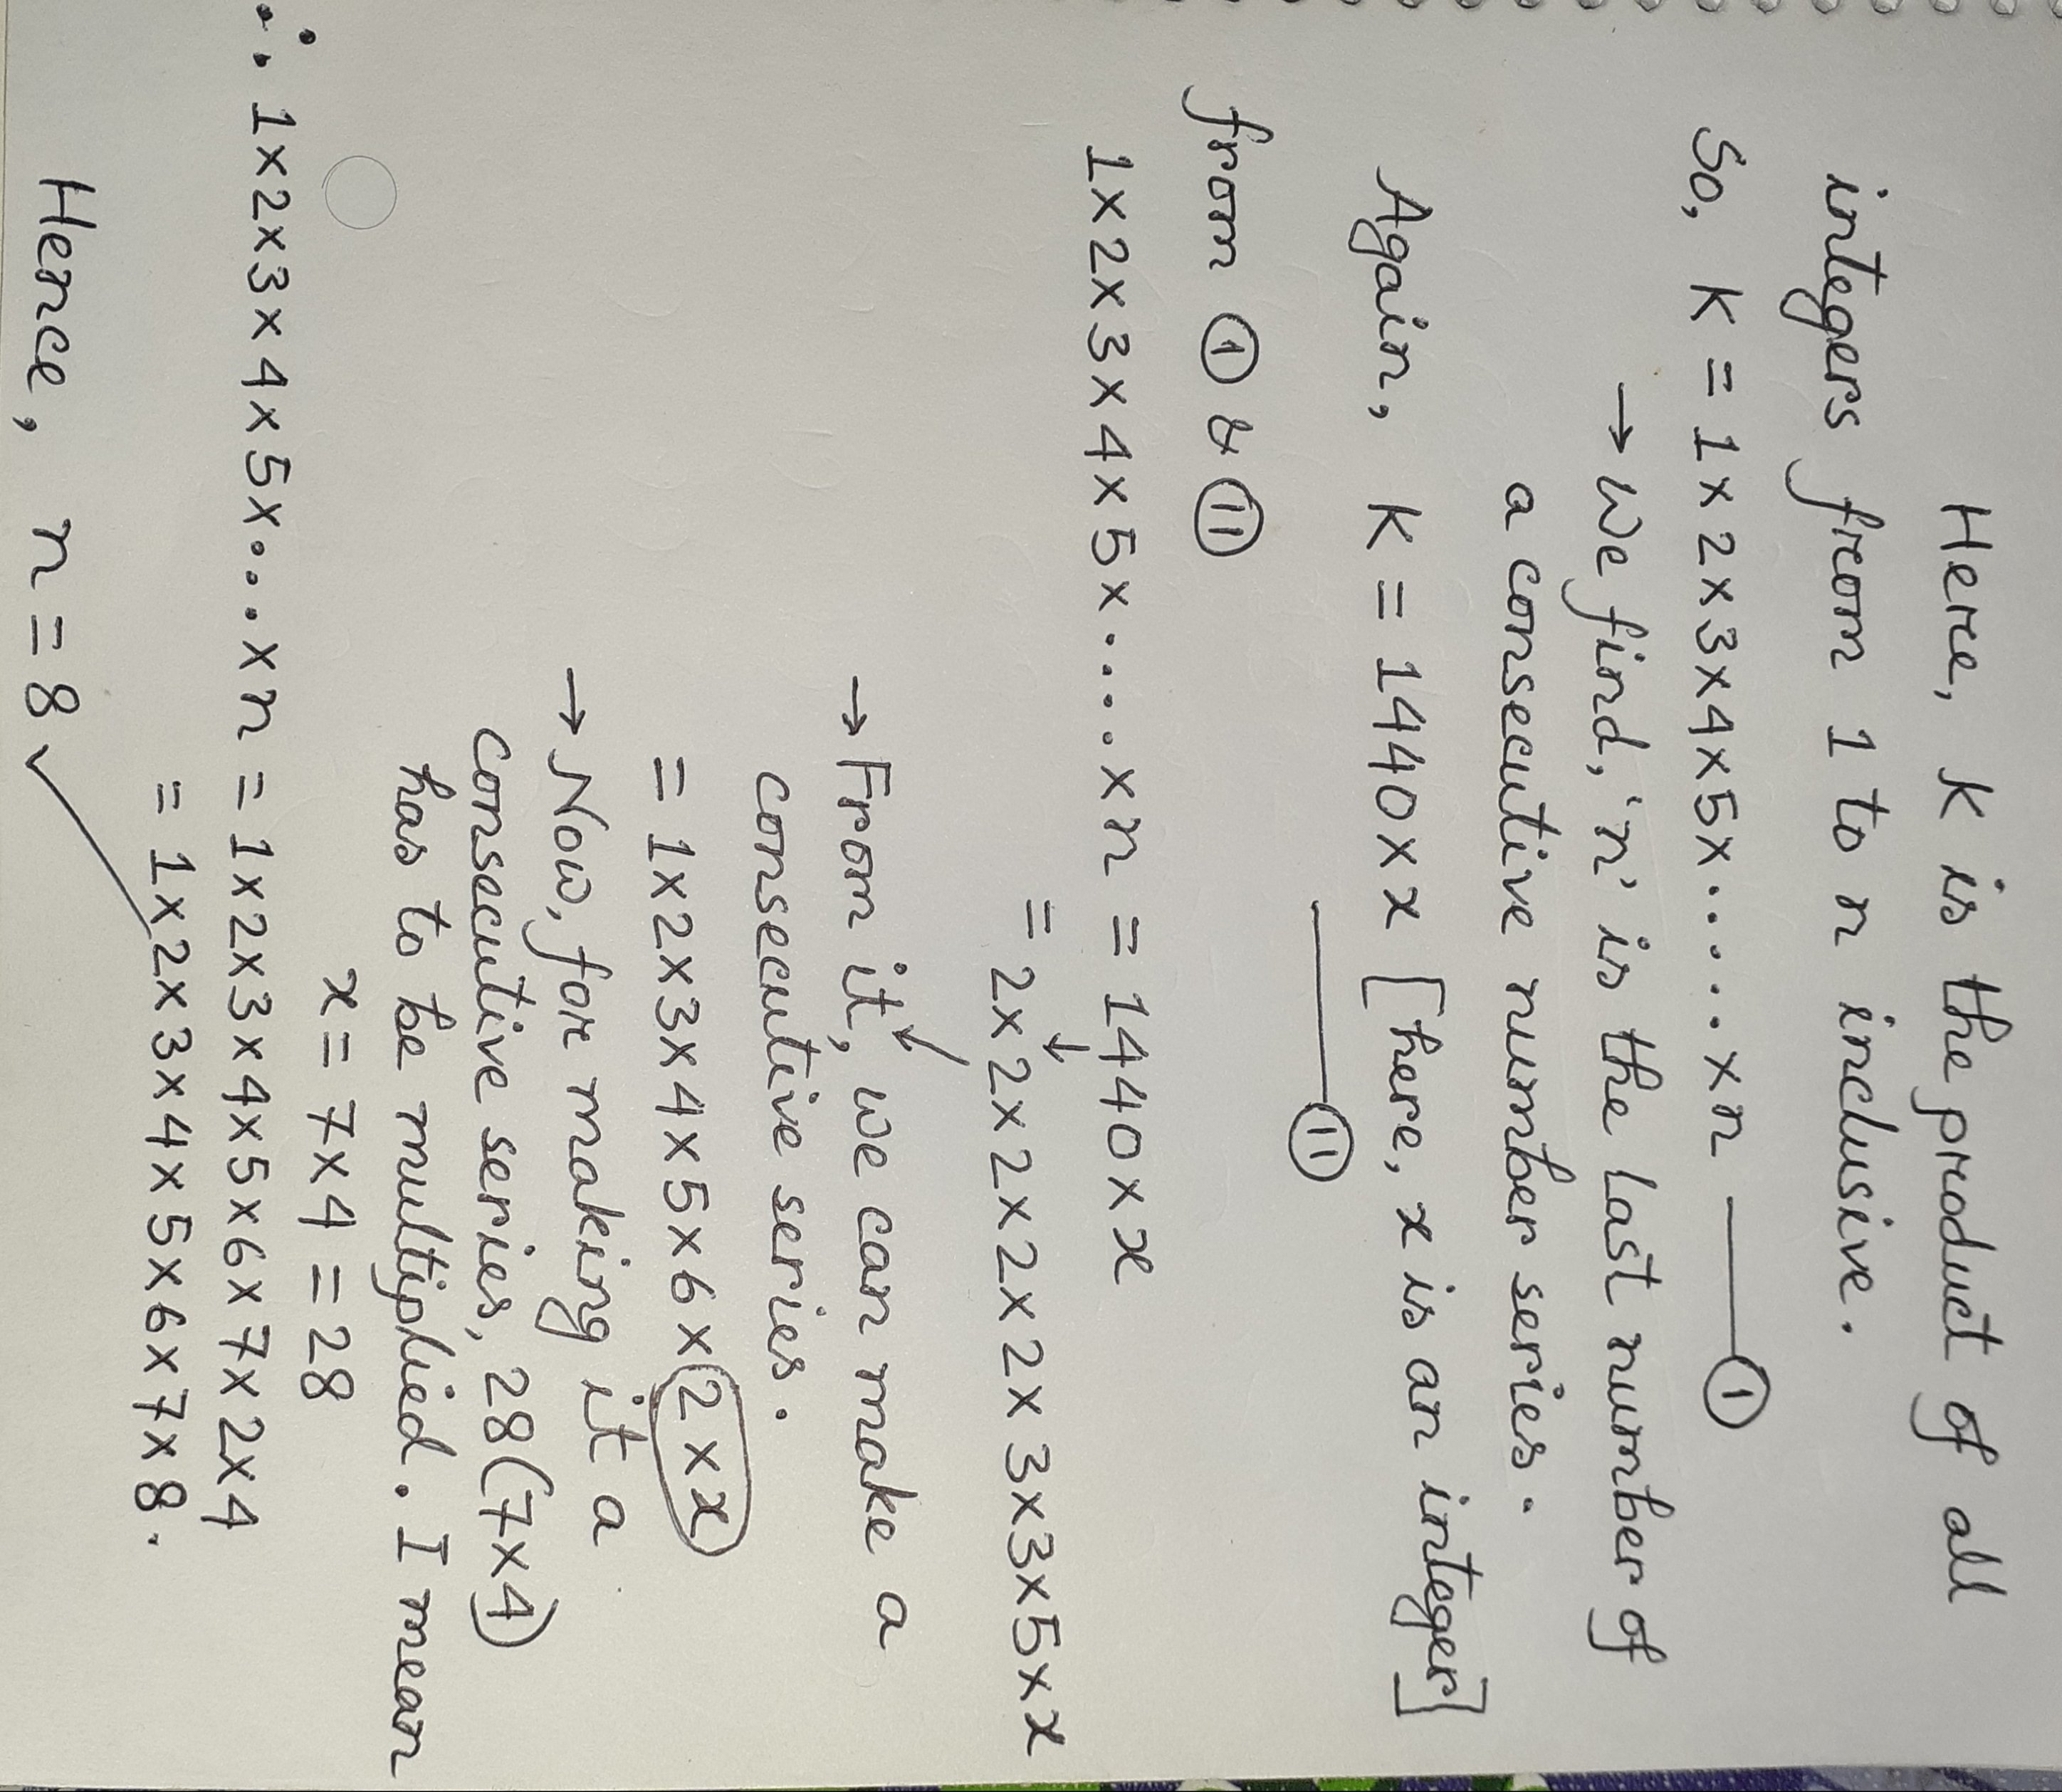 Here, K is the product of all
integers from 1 to n inclusive.
So, K = 1×2×3×4×5×......×n ——— (i)
→ We find, 'n' is the last number of
a consecutive number series.
Again, K = 1440×x [here, x is an integer]
——— (ii)
from (i) & (ii)
1×2×3×4×5×.....×n = 1440×x
= 2×2×2×2×2×3×3×5×x
→ From it, we can make a
consecutive series.
= 1×2×3×4×5×6×(2×x)
→ Now, for making it a
consecutive series, 28(7×4)
has to be multiplied. I mean
x = 7×4 = 28
∴ 1×2×3×4×5×....×n = 1×2×3×4×5×6×7×2×4
= 1×2×3×4×5×6×7×8.
Hence, n = 8 ✓